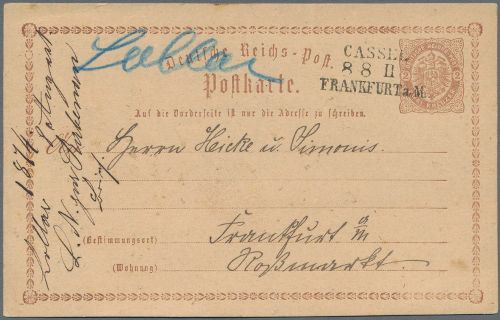 Lollar
Deutsche Reichs-Post.
Postkarte.
CASSEL
8 8 II
FRANKFURT a.M.
2
Auf die Vorderseite ist nur die Adresse zu schreiben.
An Herrn Hicke u. Simonis.
(Bestimmungsort) Frankfurt a/m
(Wohnung) Roßmarkt.
Lollar 1874 August